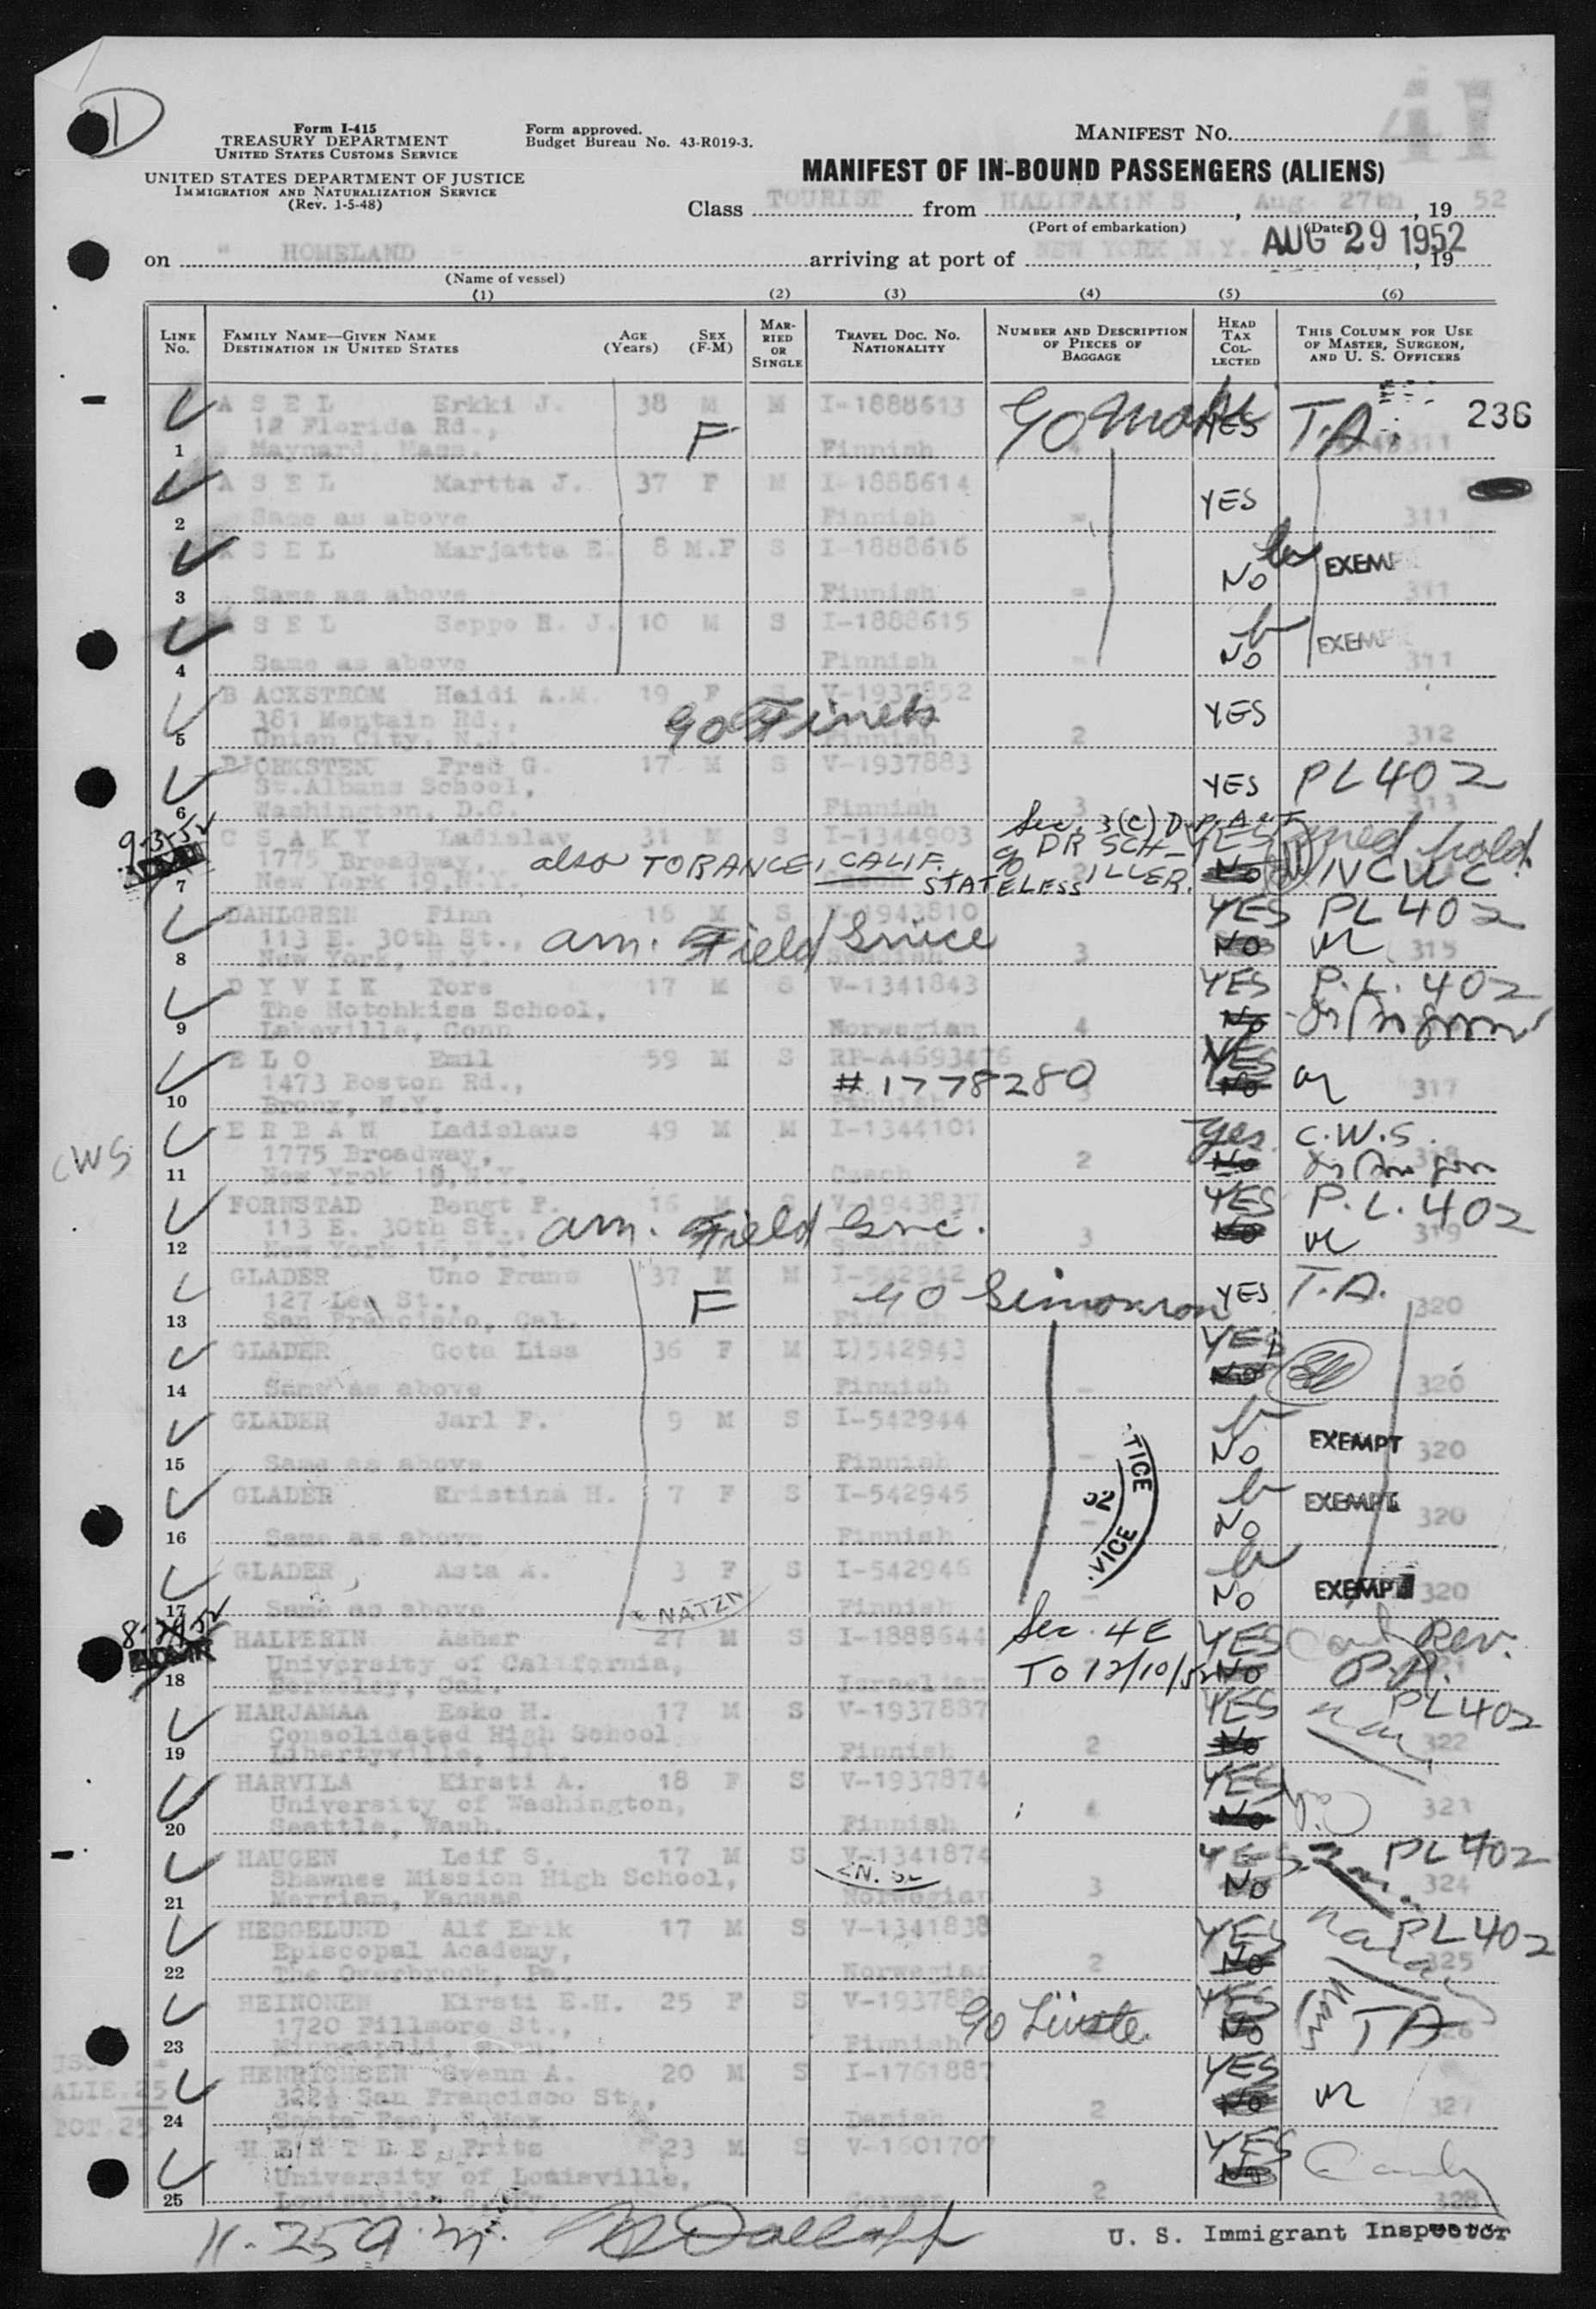 1
41
Form I-415
TREASURY DEPARTMENT
UNITED STATES CUSTOMS SERVICE
UNITED STATES DEPARTMENT OF JUSTICE
IMMIGRATION AND NATURALIZATION SERVICE
(Rev. 1-5-48)
Form approved.
Budget Bureau No. 43-R019-3.
MANIFEST NO.
MANIFEST OF IN-BOUND PASSENGERS (ALIENS)
Class TOURIST from HALIFAX:N S , Aug 27th , 19 52
(Port of embarkation) (Date)
on " HOMELAND " arriving at port of NEW YORK N.Y. AUG 29 1952 , 19
(Name of vessel)
(1) (2) (3) (4) (5) (6)
LINE No. FAMILY NAME—GIVEN NAME DESTINATION IN UNITED STATES AGE (Years) SEX (F-M) MARRIED OR SINGLE TRAVEL DOC. NO. NATIONALITY NUMBER AND DESCRIPTION OF PIECES OF BAGGAGE HEAD TAX COLLECTED THIS COLUMN FOR USE OF MASTER, SURGEON, AND U. S. OFFICERS
A S E L Erkki J. 38 M M I-1888613 YES T.A. 236
12 Florida Rd., F
1 Maynard, Mass. Finnish 4 311
A S E L Martta J. 37 F M I-1888614 YES
2 Same as above Finnish - 311
A S E L Marjatta E. 8 M.F S I-1888616 No EXEMP
3 Same as above Finnish - 311
A S E L Seppo R. J. 10 M S I-1888615 No EXEMP
4 Same as above Finnish - 311
B ACKSTROM Heidi A.M. 19 F S V-1937852 YES
381 Montain Rd.,
5 Union City, N.J. Finnish 2 312
BJORKSTEN Fred G. 17 M S V-1937883 YES PL 402
St.Albans School,
6 Washington, D.C. Finnish 3 313
9-3-52
C S A K Y Ladislav 31 M S I-1344903 Sec. 3(c) D.P. Act YES
1775 Broadway, also TORANCE, CALIF. c/o DR SCHILLER. No NCWC
7 New York 19, N.Y. Czech STATELESS 2
DAHLGREN Finn 16 M S V-1943810 YES PL 402
113 E. 30th St., am. Field Service No
8 New York, N.Y. Swedish 3 315
D Y V I K Tore 17 M S V-1341843 YES P.L. 402
The Hotchkiss School,
9 Lakeville, Conn Norwegian 4 No
E L O Emil 59 M S RP-A4693476 YES
1473 Boston Rd., # 1778280 No
10 Bronx, N.Y. Finnish 3 317
CWS
E R B A N Ladislaus 49 M M I-1344101 Yes C.W.S.
1775 Broadway, No
11 New Yrok 19, N.Y. Czech 2 318
FORNSTAD Bengt F. 16 M S V-1943837 YES P.L. 402
113 E. 30th St., am. Field Srvc. No
12 New York 16, N.Y. Swedish 3 319
GLADER Uno Frans 37 M M I-542942 YES T.A.
127 Lee St., F
13 San Francisco, Cal. Finnish 320
GLADER Gota Lisa 36 F M I)542943 YES
14 Same as above Finnish - No 320
GLADER Jarl F. 9 M S I-542944 No EXEMPT
15 Same as above Finnish - 320
GLADER Kristina H. 7 F S I-542945 No EXEMPT
16 Same as above Finnish - 320
GLADER Asta A. 3 F S I-542946 No EXEMPT
17 Same as above Finnish - 320
TICE
52
VICE
& NATZN
HALPERIN Asher 27 M S I-1888644 Sec. 4E YES Rev.
University of California, TO 12/10/52 No
18 Berkeley, Cal. Israelian
HARJAMAA Esko H. 17 M S V-1937887 YES PL 402
Consolidated High School No
19 Libertyville, Ill. Finnish 2 322
HARVILA Kirsti A. 18 F S V-1937874 YES
University of Washington, No
20 Seattle, Wash. Finnish 4 323
HAUGEN Leif S. 17 M S V-1341874 YES PL 402
Shawnee Mission High School, No
21 Merriam, Kansas Norwegian 3 324
HEGGELUND Alf Erik 17 M S V-1341838 YES PL 402
Episcopal Academy, No
22 The Overbrook, Pa. Norwegian 2 325
HEINONEN Kirsti E.H. 25 F S V-193788 YES TA
1720 Fillmore St., No
23 Finnish
HENRICHSEN Svenn A. 20 M S I-1761887 YES
322½ San Francisco St., No
24 Santa Fee, N.Mex Danish 2 327
H E R T D E Frits 23 M S V-1601707 YES
University of Louisville, No
25 Louisville 8, Ky. German 2 328
ALIE 25
TOT 25
U. S. Immigrant Inspector